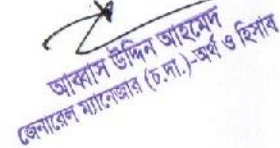 আব্বাস উদ্দিন আহমেদ
জেনারেল ম্যানেজার (চ.দা.)-অর্থ ও হিসাব